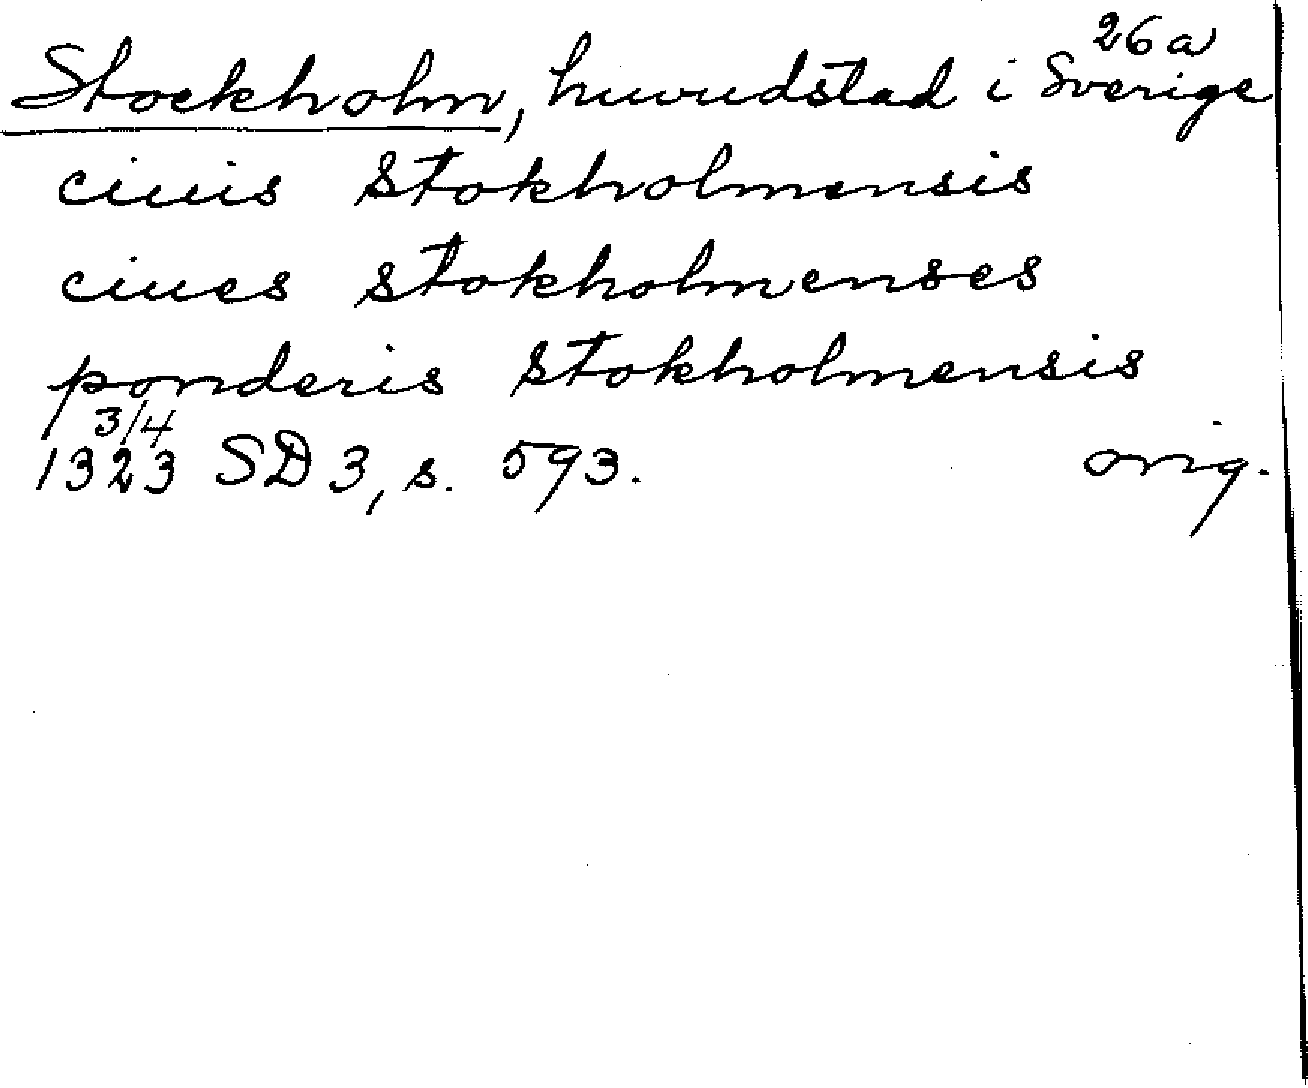 26a
Stockholm, huvudstad i Sverige
ciuis stokholmensis
ciues stokholmenses
ponderis stokholmensis
3/4
1323 SD 3, s. 593. orig.